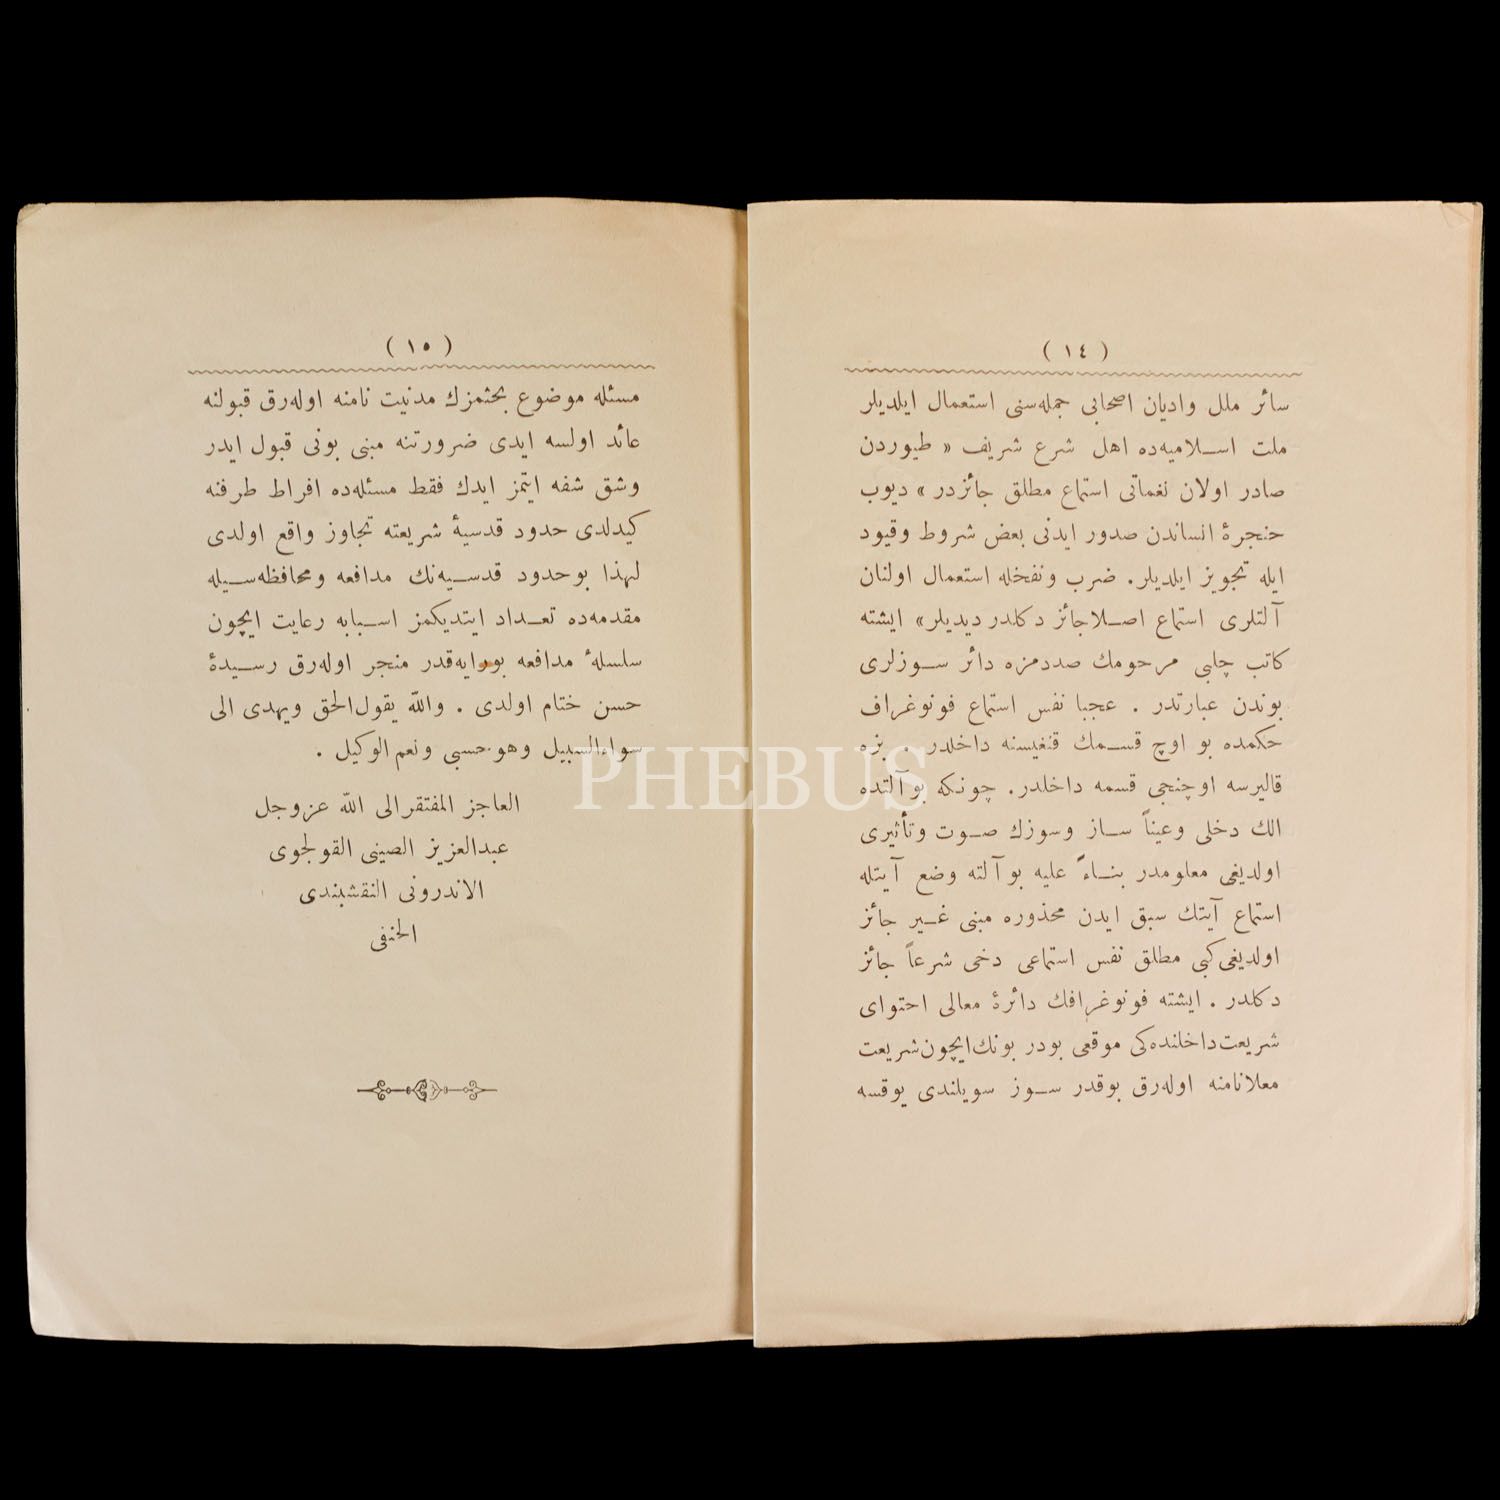 ( ١٤ )
سائر ملل واديان اصحابى جمله‌سنى استعمال ايلديلر
ملت اسلاميه‌ده اهل شرع شريف « طيوردن
صادر اولان نغماتى استماع مطلق جائزدر » ديوب
حنجرهٔ انساندن صدور ايدنى بعض شروط وقيود
ايله تجويز ايلديلر. ضرب ونفخله استعمال اولنان
آلتلرى استماع اصلا جائز دكلدر ديديلر» ايشته
كاتب چلبى مرحومك صددمزه دائر سوزلرى
بوندن عبارتدر . عجبا نفس استماع فونوغراف
حكمده بو اوچ قسمك قنغيسنه داخلدر . بزه
قاليرسه اوچنجى قسمه داخلدر. چونكه بو آلتده
الك دخلى وعيناً ساز وسوزك صوت وتأثيرى
اولديغى معلومدر بناءً عليه بو آلته وضع آيتله
استماع آيتك سبق ايدن محذوره مبنى غير جائز
اولديغى كبى مطلق نفس استماعى دخى شرعاً جائز
دكلدر . ايشته فونوغرافك دائرهٔ معالى احتواى
شريعت داخلنده‌كى موقعى بودر بونك ايچون شريعت
معلا نامنه اوله‌رق بوقدر سوز سويلندى يوقسه
( ١٥ )
مسئله موضوع بحثمزك مدنيت نامنه اوله‌رق قبولنه
عائد اولسه ايدى ضرورتنه مبنى بونى قبول ايدر
وشق شفه ايتمز ايدك فقط مسئله‌ده افراط طرفنه
كيدلدى حدود قدسيهٔ شريعته تجاوز واقع اولدى
لهذا بو حدود قدسيه‌نك مدافعه ومحافظه‌سيله
مقدمه‌ده تعداد ايتديكمز اسبابه رعايت ايچون
سلسلهٔ مدافعه بورايه‌قدر منجر اوله‌رق رسيدهٔ
حسن ختام اولدى . والله يقول الحق ويهدى الى
سواء السبيل وهو حسبى ونعم الوكيل .
العاجز المفتقر الى الله عز وجل
عبدالعزيز الصينى القولجوى
الاندرونى النقشبندى
الحنفى
PHEBUS